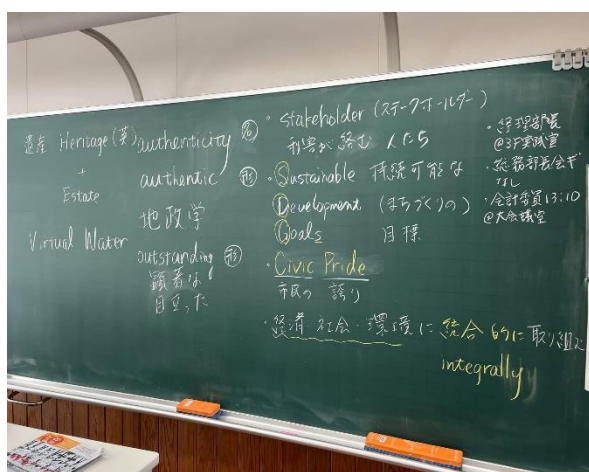 遺産 Heritage (英)
+
Estate
Virtual Water
authenticity 名
authentic 形
地政学
outstanding 形
顕著な
目立った
・stakeholder (ステークホールダー)
利害が絡む 人たち
・Sustainable 持続可能な
Development (まちづくりの)
Goals 目標
・Civic Pride
市民の 誇り
・経済・社会・環境に 統合的に取り組む
integrally
・経理部長
@3F実践室
・総務部長会議
なし
・会計委員13:10
@大会議室